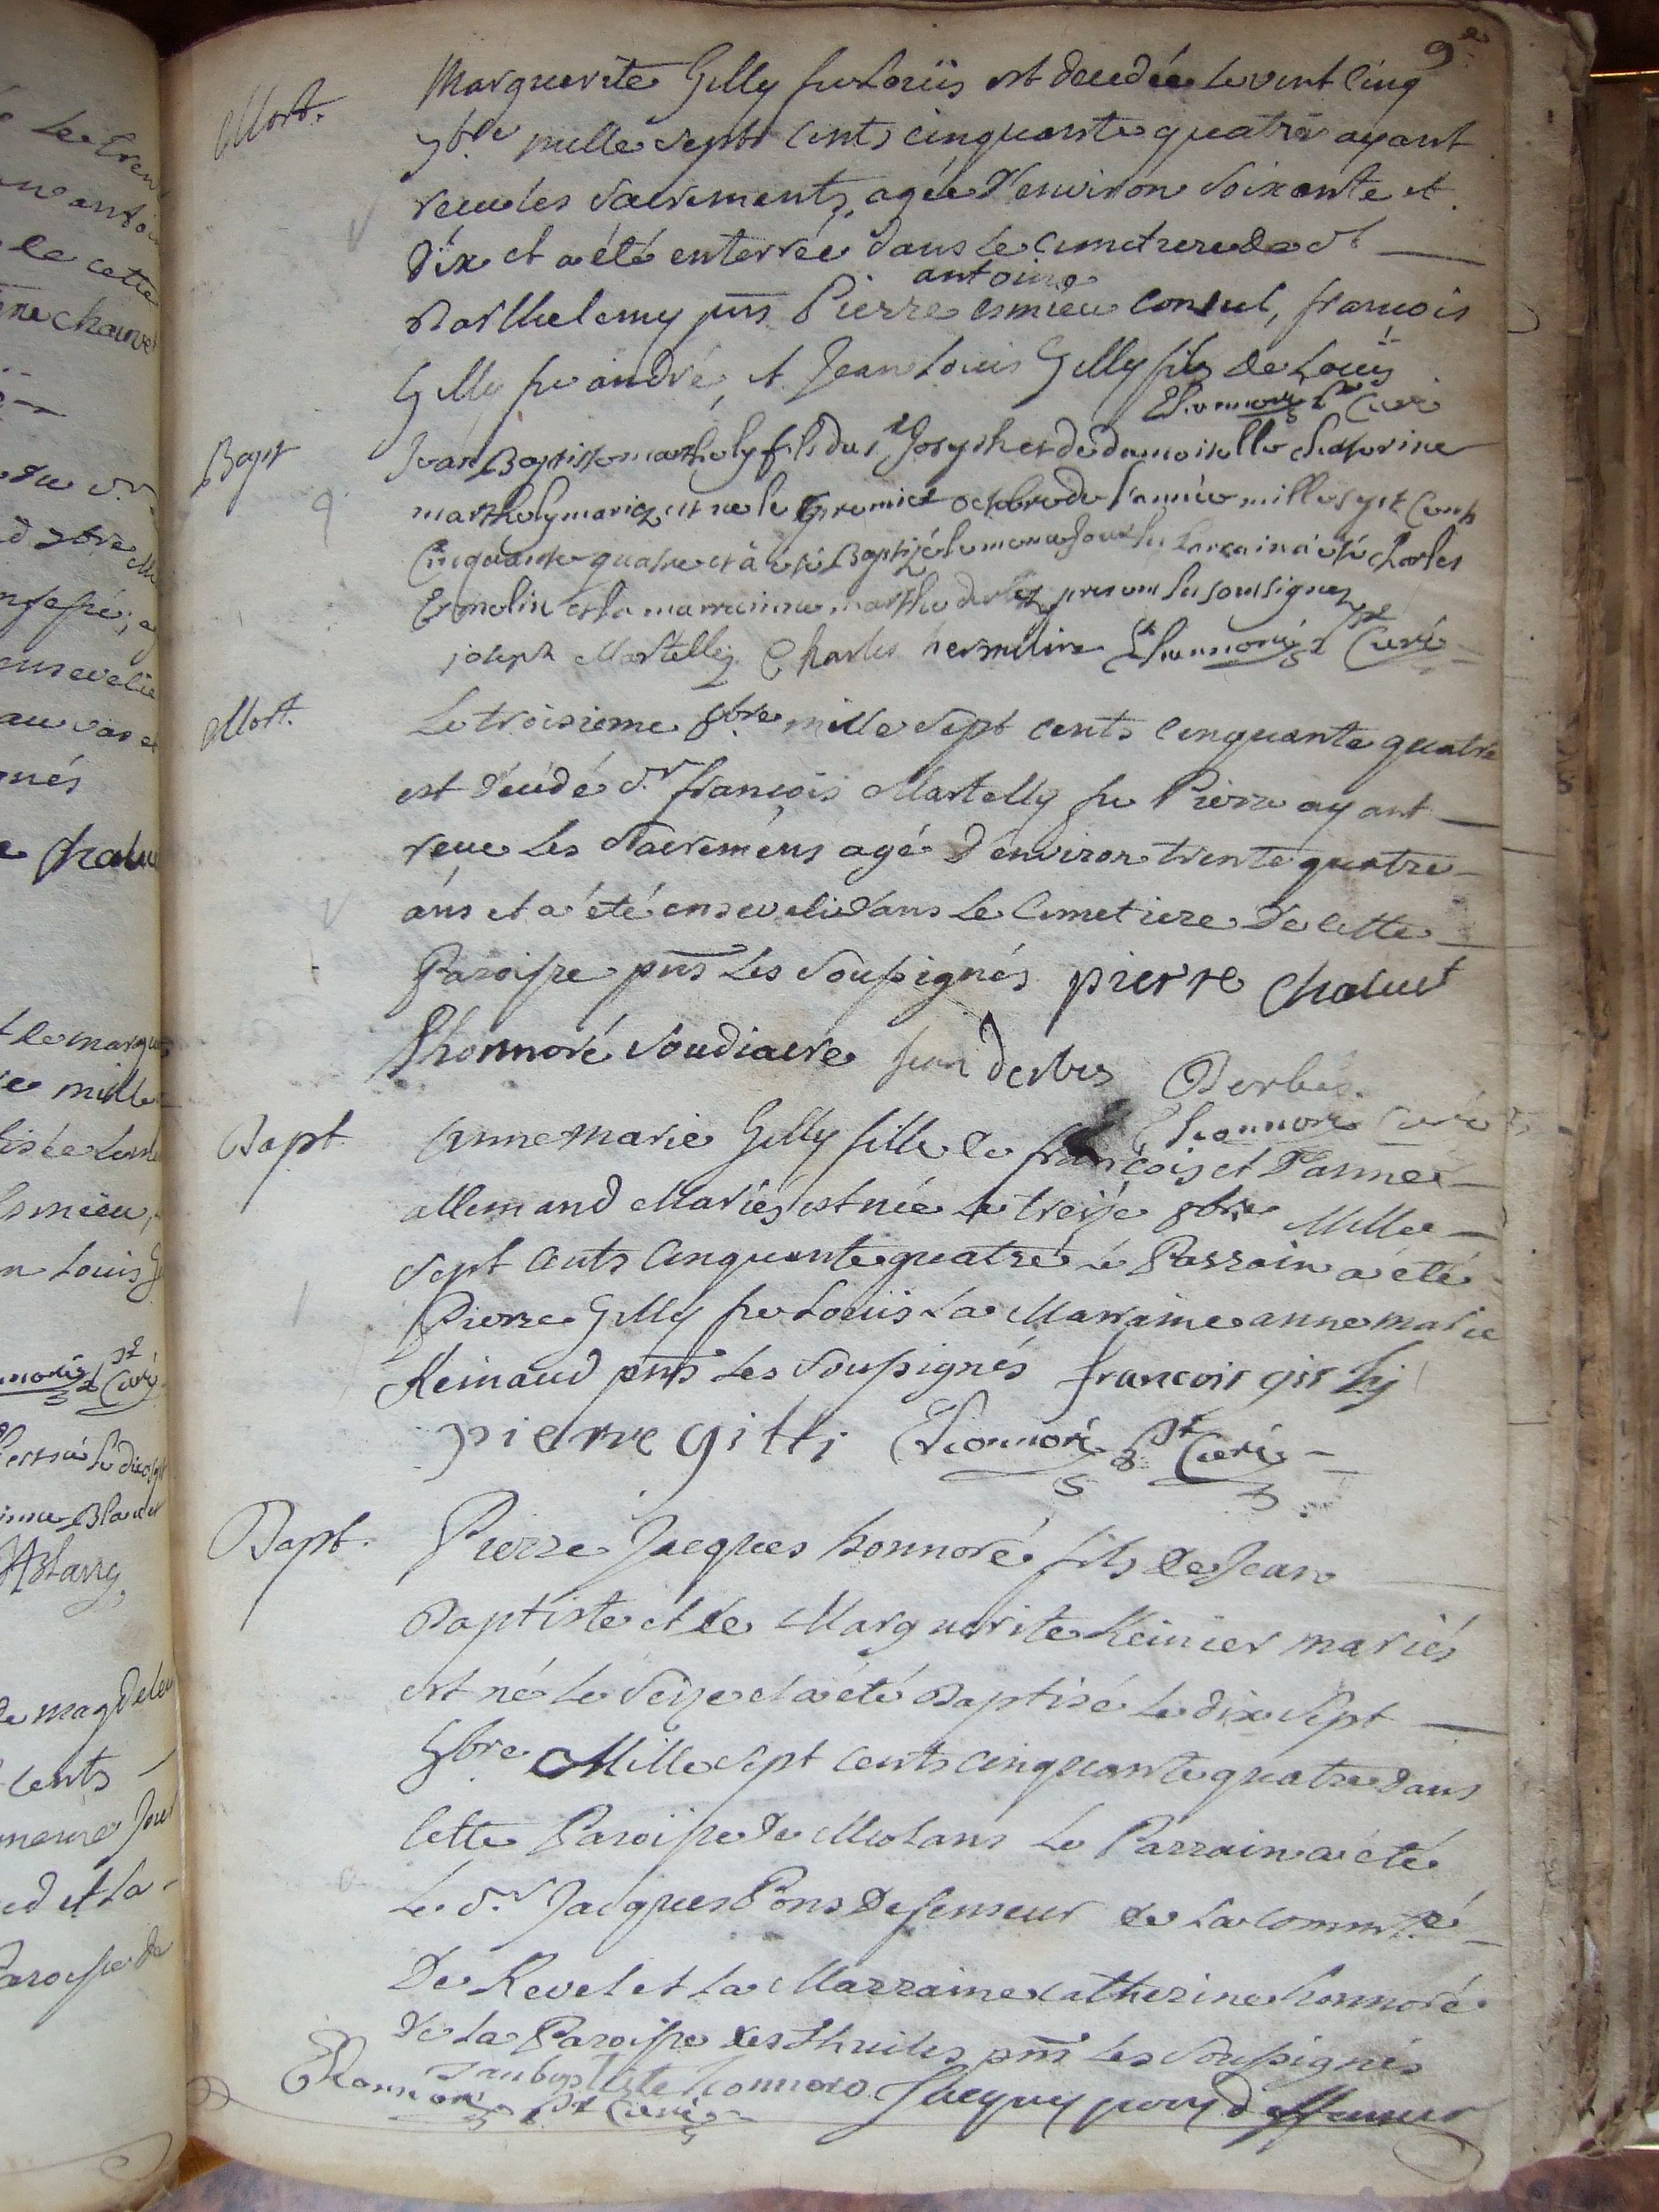 9e
Mort.
Marguerite Gilly fu Loüis est decedée le vint cinq
7bre mille septs cents cinquante quatre ayant
recu les sacrements, agée d'environ soixante et
dix et a été enterrée dans le cimetiere de st
antoine
Barthelemy pns Pierre esmieu consul, francois
Gilly fu andré, et Jean Louis Gilly fils de Loüis
Lhonnoré pt Curé
Bapt
Jean Baptiste marthely fils du sr Joseph et de damoiselle Catherine
marthely mariez est né le premier octobre de l'année mille sept cents
Cinquante quatre et à été Baptizé le meme Jour le parrain a été charles
Ermelin et la marrainne marthe derbez presents les soussignez
joseph Martelly Charles hermeline Lhonnoré pt Curé
Mort.
Le troisieme 8bre mille sept cents cinquante quatre
est décédé sr françois Martelly fu Pierre ayant
reçue les sacrémens agé d'environ trente quatre
áns et a été enseveli dans le cimetiere de cette
Paroisse pns les soussignés pierre chaluet
Lhonnoré soudiacre jean derbes Derbés
Lhonnoré curé
Bapt
Anne marie Gilly fille de françois et d'anne
allemand Mariés est née le treize 8bre Mille
sept cents cinquante quatre le Parrain a été
Pierre Gilly fu Loüis la Marraine anne marie
Reinaud pns les soussignés francois gillij
pierre gilli Lhonnoré pt Curé
Bapt.
Pierre Jacques honnoré fils de Jean
Baptiste et de Marguerite Reinier mariés
est né le seize et a été Baptisé le dix sept
8bre Mille sept cents cinquante quatre dans
cette Paroisse de Meolans le Parrain a été
le sr Jacques Pons Defenseur de la commté
De Revel et la Marraine catherine honnoré
de la Paroisse des Thuiles pns les soussignés
Jean baptiste honnoro Jacques pons deffenseur
Lhonnoré pt Curé